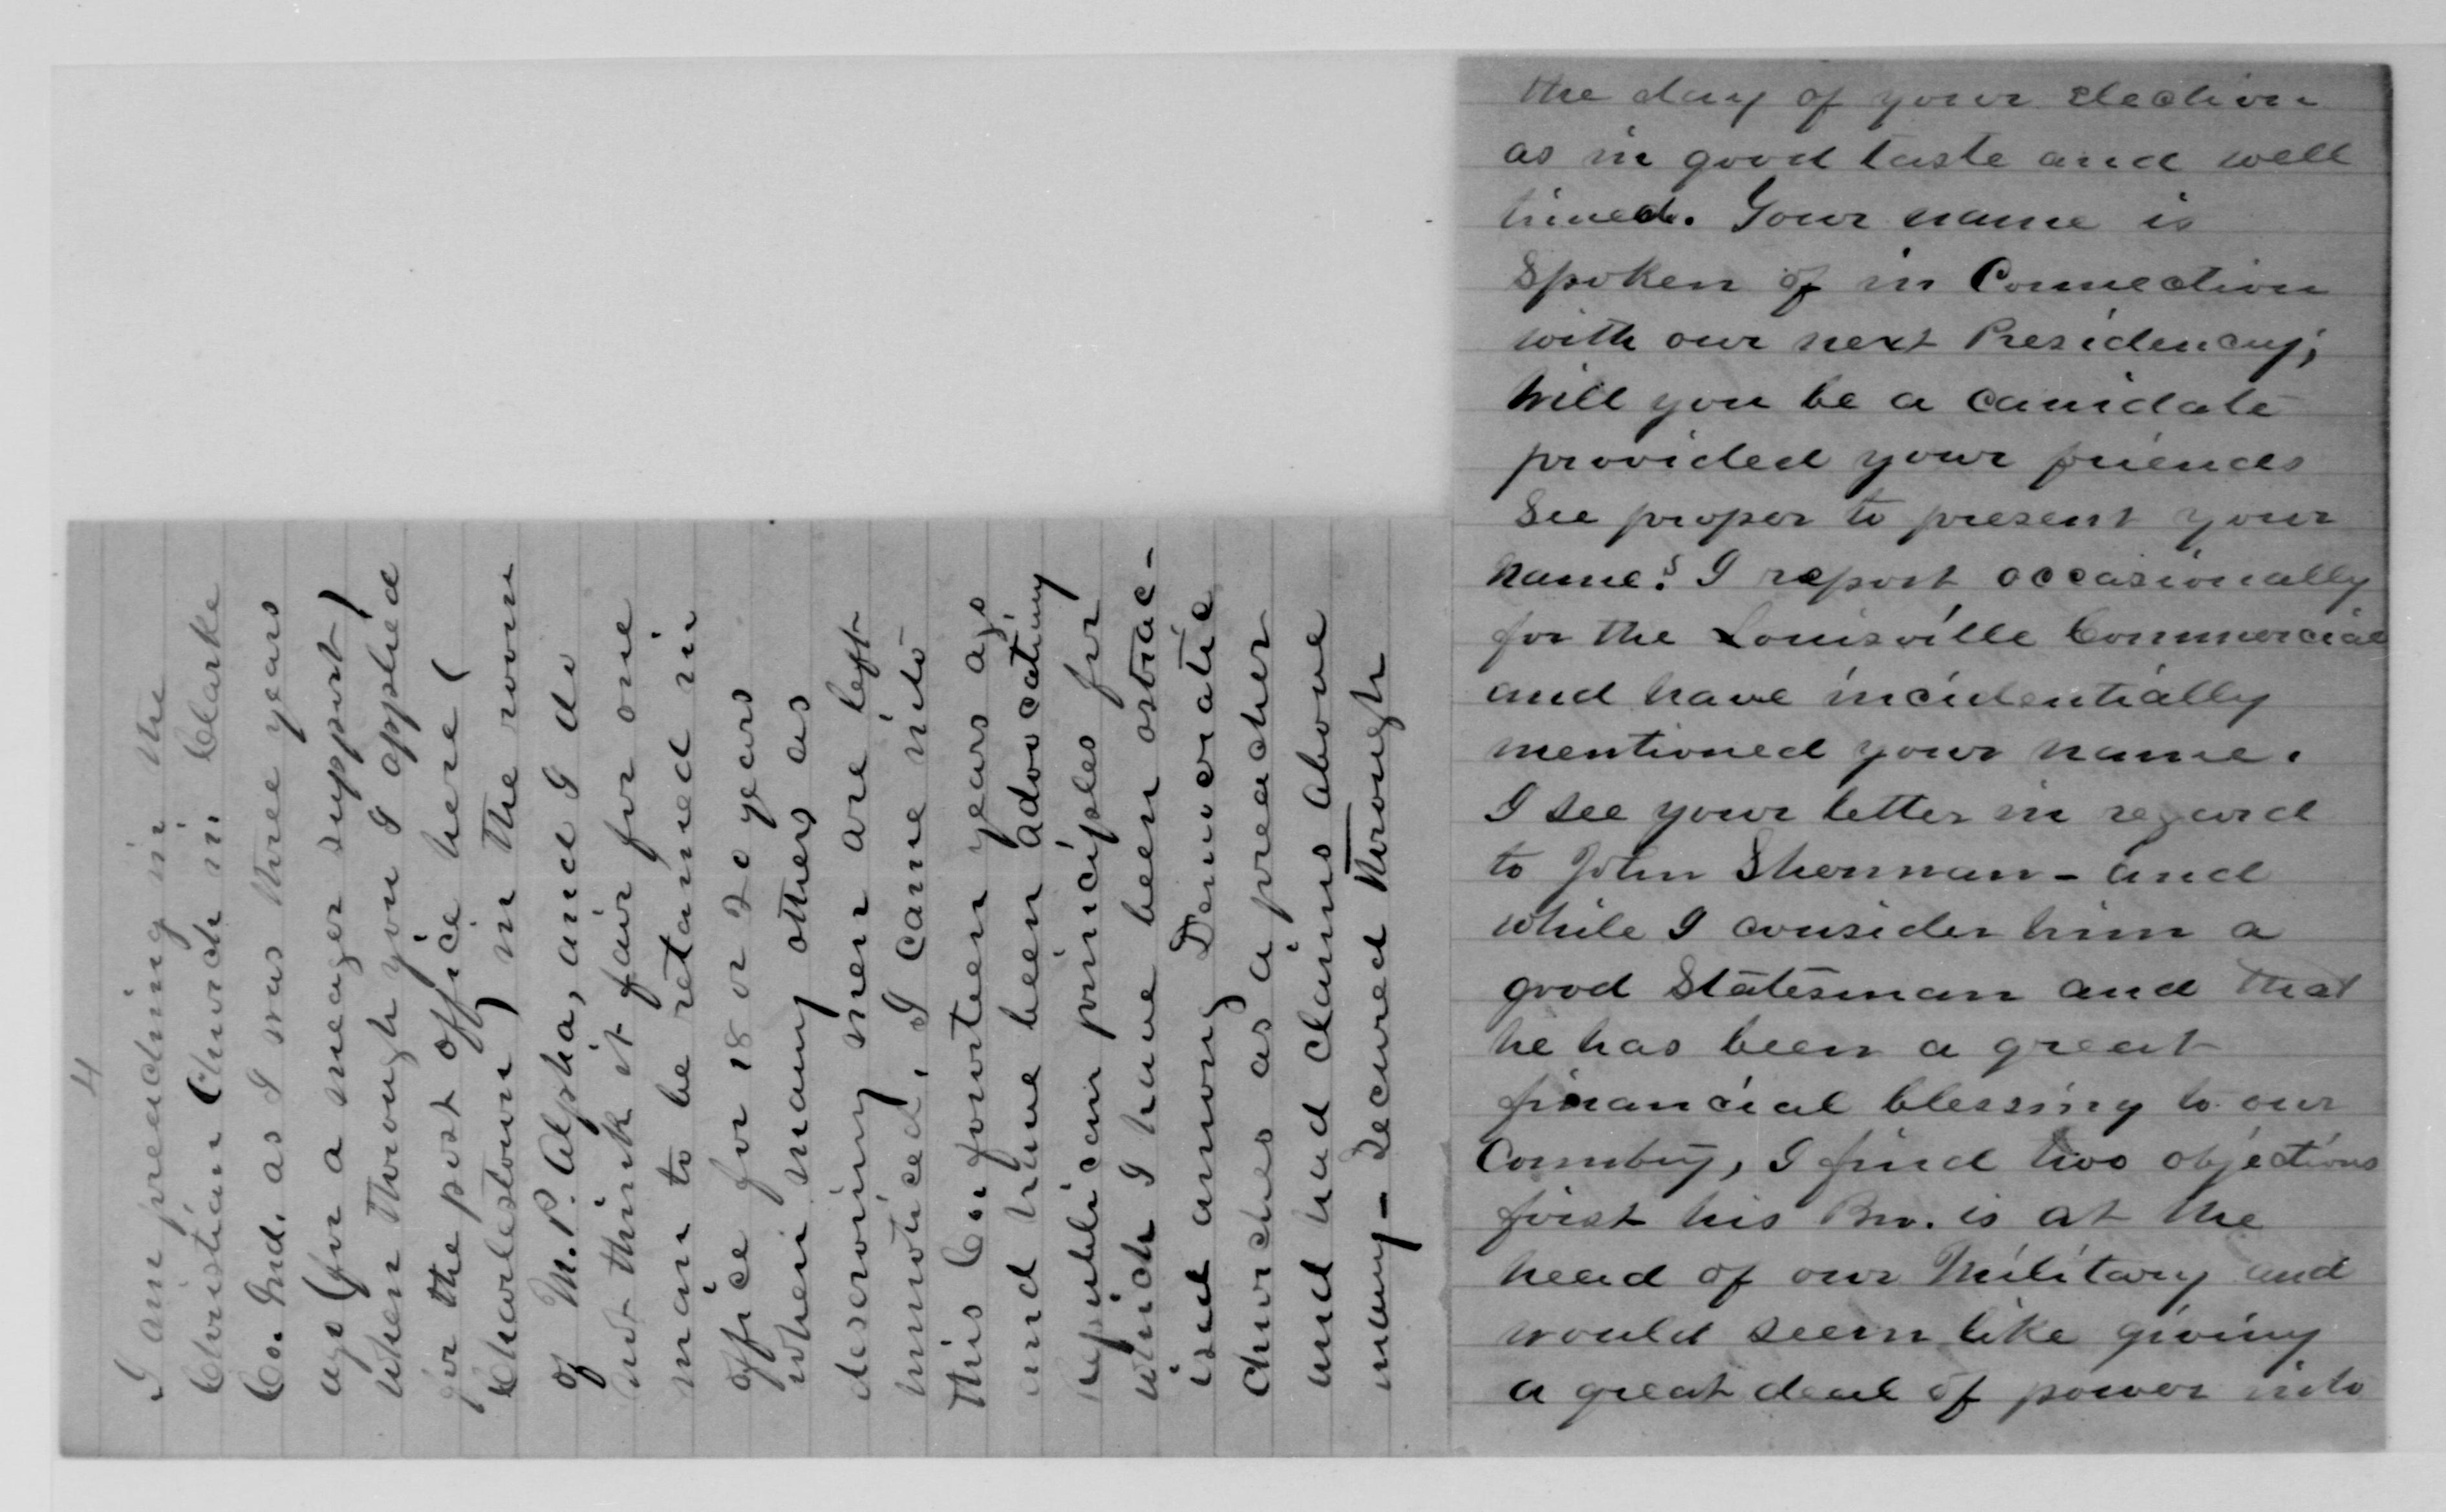 4
I am preaching in the
Christian Church in Clarke
Co. Ind. as I was three years
ago (for a meager support)
when through you I applied
for the post office here (
Charlestown) in the room
of M. P. Alpha, and I do
not think it fair for one
man to be retained in
office for 18 or 20 years
when many others as
deserving men are left
unnoticed. I came into
this Co. fourteen years ago
and have been advocating
republican principles for
which I have been ostrac-
ised among Democratic
churches as a preacher
and had claims above
many - secured through
the day of your election
as in good taste and well
timed. Your name is
spoken of in Connection
with our next Presidency;
Will you be a canidate
provided your friends
See proper to present your
name? I report occasionally
for the Louisville Commercial
and have incidentially
mentioned your name.
I see your letter in regard
to John Sherman - and
while I consider him a
good Statesman and that
he has been a great
financial blessing to our
Country, I find two objections
first his Bro. is at the
head of our Military and
would seem like giving
a great deal of power into